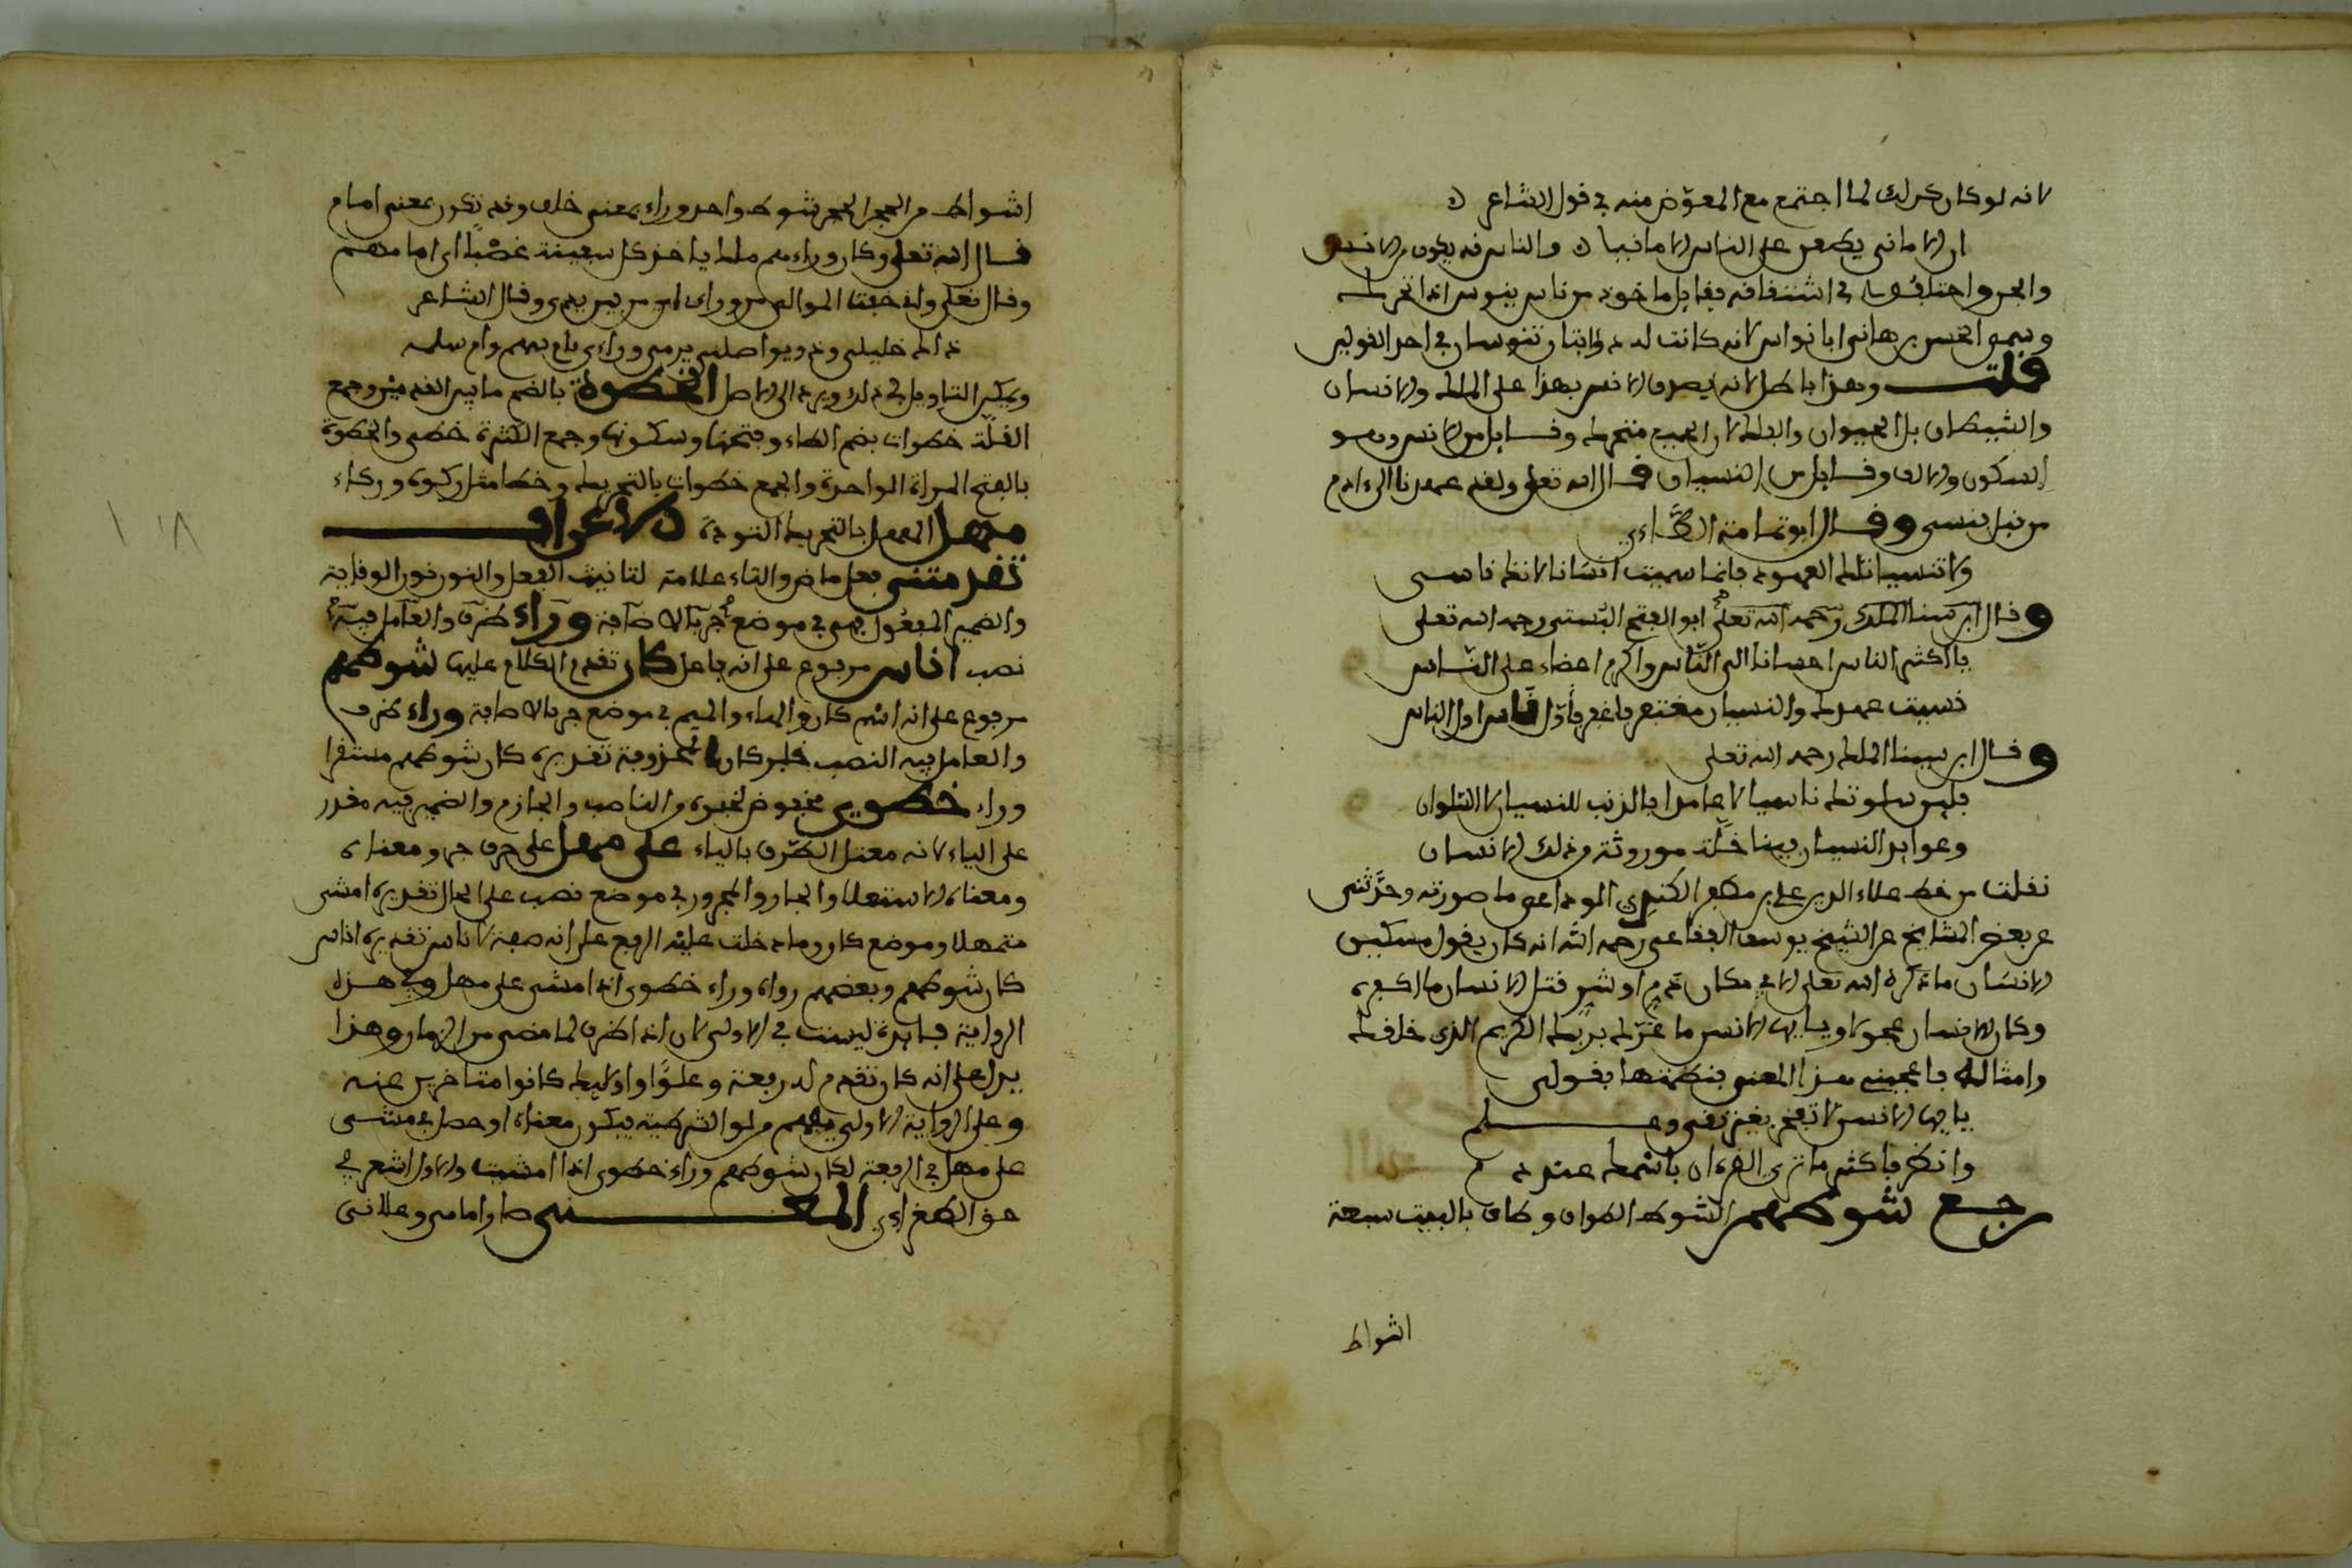 لانه لو كان كذلك لما اجتمع مع المعوّض منه في قول الشاعر
ان الاماني يطلعن على الناس الامانينا والناس قد يكون من الانس
والجن واختلفوا في اشتقاقه فقيل ماخوذ من ناس ينوس اذا تحرك
وسمي الحسن بن هاني ابا نواس لانه كانت له ذوابتان تنوسان في احد القولين
قلت وهذا باطل لانه يصدق الانس بهذا على الملك والانسان
والشيطان بل الحيوان والفلك لان الجميع متحرك وقيل من الانس وهو
السكون والالف وقيل من النسيان قال الله تعلى ولقد عهدنا الى ءادم
من قبل فنسي وقال ابو تمامة الطاءي
ولا تنسين تلك العهود فانما سميت انسانا لانك ناسي
وقال ابن سنا الملك رحمه الله تعلى ابو الفتح البستي رحمه الله تعلى
يا اكثر الناس احسانا الى النّاس واكرم اغضاء على النّاس
نسيت عهدك والنسيان مغتفر فاغفر فاوّل ناس اول الناس
وقال ابن سينا الملك رحمه الله تعلى
فليس سلوتك ناسيا لا عامدا بالذنب للنسيان لا السلوان
وعوايد النسيان فينا خلّة موروثة من ذلك الانسان
نقلت من خط علاء الدين علي بن مظفر الكندي الوداعي ما صورته وحدّثني
عن بعض المشايخ عن الشيخ يوسف الفقاعي رحمه الله انه كان يقول مسكين
الانسان ما ذكره الله تعلى الا في مكان ذم او شر قتل الانسان ما اكفره
وكان الانسان عجولا ويايها الانسن ما غرّك بربك الكريم الذي خلقك
وامثاله فاعجبني هذا المعنى فنظمتها بقولي
يايها الانسن لا تفخر بغير تقى وعلم
وانظر فاكثر ما ترى القرءان باسمك عند ذم
رجع شوطهم الشوط الطواف وطاف بالبيت سبعة
اشواط
اشواط من الحجر الى الحجر شوط واحد وراء بمعنى خلف وقد تكون بمعنى امام
قال الله تعلى وكان وراءهم ملك ياخذ كل سفينة غصبًا اي امامهم
وقال تعلى واني خفت الموالي من وراءي اي من بين يدي وقال الشاعر
ذاك خليلي وذو يواصلني يرمي وراءي بام سهم وام سلمه
ويمكن التاويل في ذلك ويرد الى الاصل الخطوة بالضم ما بين القدمين وجمع
القلّة خطوات بضم الطاء وفتحها وسكونها وجمع الكثرة خطى والخطوة
بالفتح المراة الواحدة والجمع خطوات بالتحريك وخطا مثل ركوة وركاء
مهل المهل بالتحريك التودة الاعراب
تقدمتني فعل ماض والتاء علامة لتانيث الفعل والنون نون الوقاية
والضمير المفعول وهي في موضع جر بالاضافة وراء ظرف والعامل فيه
نصب اناس مرفوع على انه فاعل كان تقدم الكلام عليها شوطهم
مرفوع على انه اسم كان والهاء والميم في موضع جر بالاضافة وراء ظرف
والعامل فيه النصب خبر كان المحذوفة تقديره كان شوطهم مستقرا
وراء خطوي مخفوض لتجرده من الناصب والجازم والضمة فيه مقدرة
على الياء لانه معتل الطرف بالياء على مهل على حرف جر ومعناه
ومعناه الاستعلا والجار والمجرور في موضع نصب على الحال تقديره امشي
متمهلا وموضع كان وما دخلت عليه الرفع على انه صفة لاناس تقديره اناس
كان شوطهم وبعضهم رواه وراء خطوي اذ امشي على مهل وفي هذه
الرواية فايدة ليست في الاولى لان اذ ظرف لما مضى من الزمان وهذا
يدل على انه كان تقدم له رفعة وعلوّ اوليك كانوا متاخرين عنه
وعلى الرواية الاولى يفهم من لو الشرطية فيكون معناه او حصل لي مشى
على مهل في الرفعة لكان شوطهم وراء خطوي اذا امشيت والاول اشعر في
حق الطغراءي المعنى صار امامي وعلاني